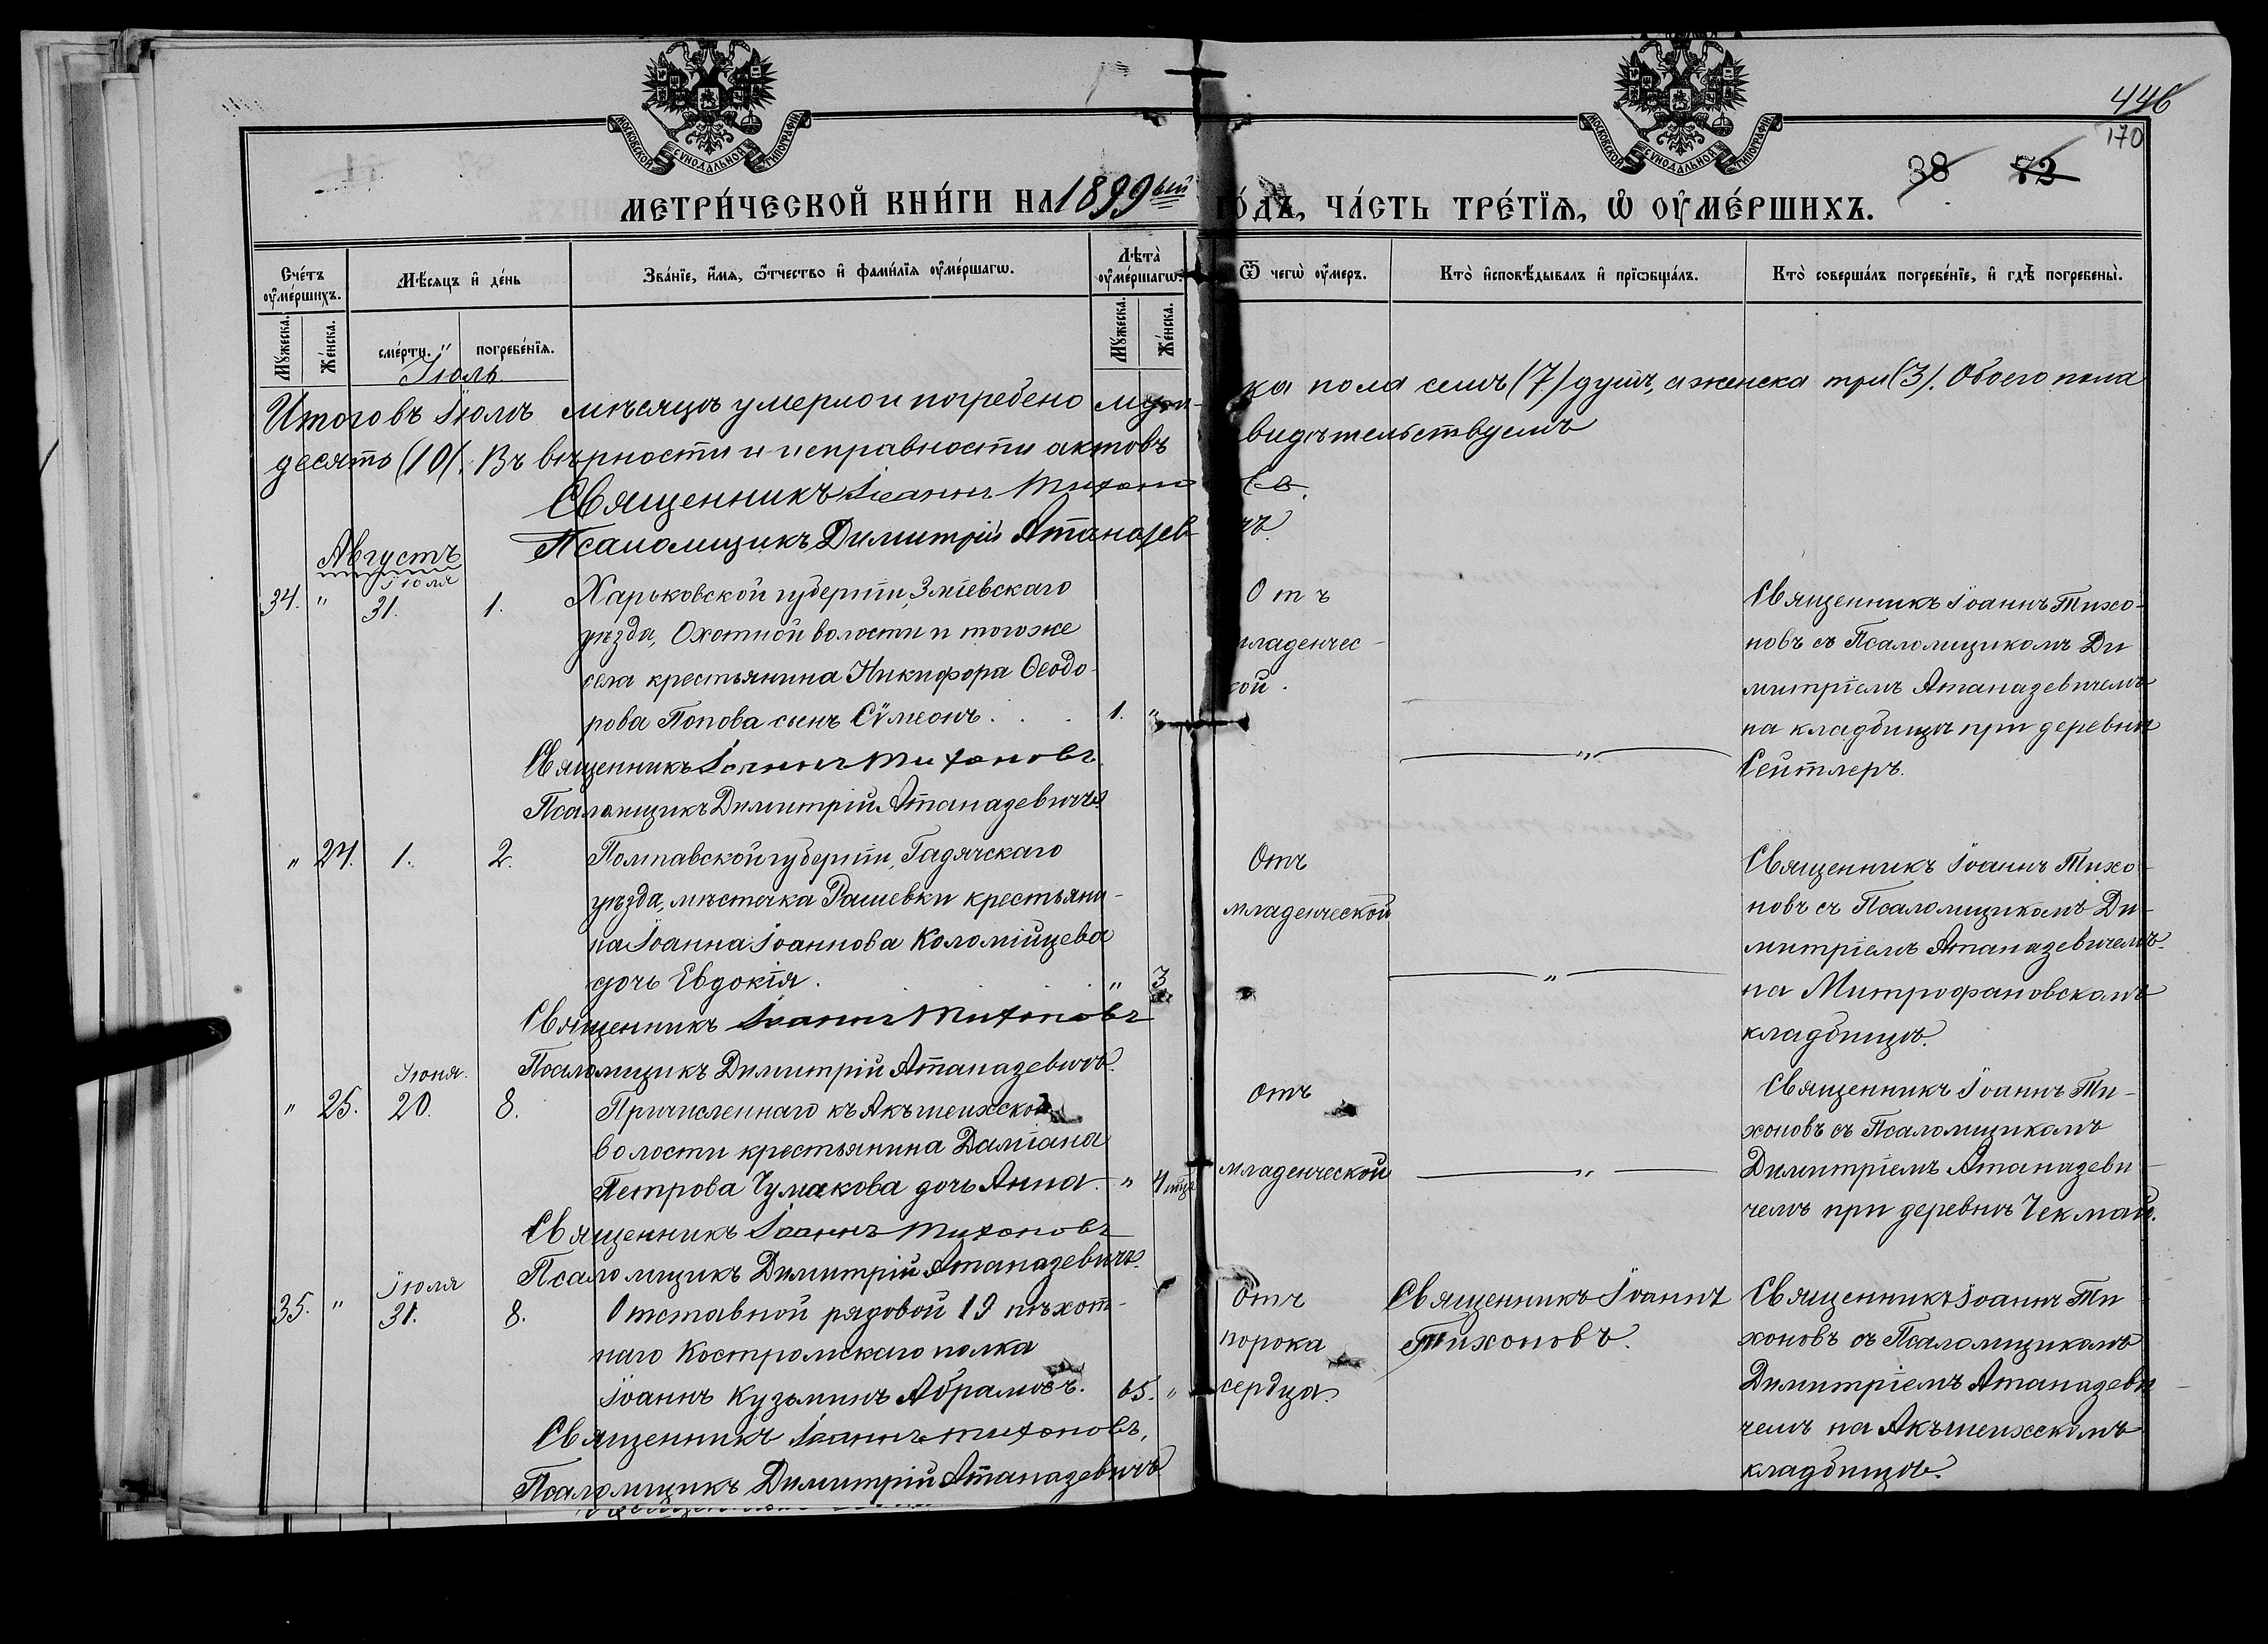 446
170
38 72
МОСКОВСКОЙ СѴНОДАЛЬНОЙ ТИПОГРАФІИ
МОСКОВСКОЙ СѴНОДАЛЬНОЙ ТИПОГРАФІИ
МЕТРИ́ЧЕСКОЙ КНИ́ГИ НА 1899ый ГО́ДЪ, ЧА́СТЬ ТРЕ́ТЇѦ, Ѡ ОУ҆МЕ́РШИХЪ.
Счéтъ оу҆мéршихъ.
Мѣ́сяцъ и҆ дéнь
Звáнїе, и҆́мя, ѻ҆́тчество и҆ фами́лїя оу҆мéршагѡ.
Лѣтà оу҆мéршагѡ.
Ѿ чегѡ̀ оу҆́меръ.
Ктò и҆сповѣ́дывалъ и҆ прїѡбщáлъ.
Ктò совершáлъ погребéнїе, и҆ гдѣ̀ погребены̀.
Мꙋ́жеска.
Жéнска.
смéрти.
погребéнїя.
Мꙋ́жеска.
Жéнска.
Іюль.
Итого въ Іюлѣ мѣсяцѣ умерло и погребено муже-ска пола семь (7) душъ, а женска три (3). Обоего пола
десять (10). Въ вѣрности и исправности актовъ свидѣтельствуемъ
Священникъ Іоаннъ Тихоновъ.
Псаломщикъ Димитрій Атаназевичъ.
Августъ
Іюля
34. " 31. 1.
Харьковской губерніи, Зміевскаго
уѣзда, Охотной волости и тогоже
села крестьянина Никифора Ѳеодо-
рова Попова сынъ Сѵмеонъ . . . 1. "
Священникъ Іоаннъ Тихоновъ
Псаломщикъ Димитрій Атаназевичъ.
Отъ
младенчес-
кой.
"
Священникъ Іоаннъ Тихо-
новъ съ Псаломщикомъ Ди
митріемъ Атаназевичемъ
на кладбищѣ при деревнѣ
Сейтлеръ.
" 24. 1. 2.
Полтавской губерніи, Гадячскаго
уѣзда, мѣстечка Рашевки крестьяни-
на Іоанна Іоаннова Коломійцева
дочь Евдокія. " 3
Священникъ Іоаннъ Тихоновъ
Псаломщикъ Димитрій Атаназевичъ.
Отъ
младенческой
"
Священникъ Іоаннъ Тихо-
новъ съ Псаломщикомъ Ди-
митріемъ Атаназевичемъ
на Митрофановскомъ
кладбищѣ.
Іюня.
" 25. 20. 8.
Причисленнаго къ Акъшеихской
волости крестьянина Даміана
Петрова Чумакова дочь Анна. " 4 мѣс
Священникъ Іоаннъ Тихоновъ
Псаломщикъ Димитрій Атаназевичъ.
отъ
младенческой
"
Священникъ Іоаннъ Ти-
хоновъ съ Псаломщикомъ
Димитріемъ Атаназеви-
чемъ при деревнѣ Чекмай.
Іюля
35. " 31. 8.
Отставной рядовой 19 пѣхот-
наго Костромскаго полка
Іоаннъ Кузьминъ Абрамовъ. 65. "
Священникъ Іоаннъ Тихоновъ,
Псаломщикъ Димитрій Атаназевичъ
Отъ
порока
сердца.
Священникъ Іоаннъ
Тихоновъ.
Священникъ Іоаннъ Ти
хоновъ съ Псаломщикомъ
Димитріемъ Атаназеви-
чемъ на Акъшеихскомъ
кладбищѣ.